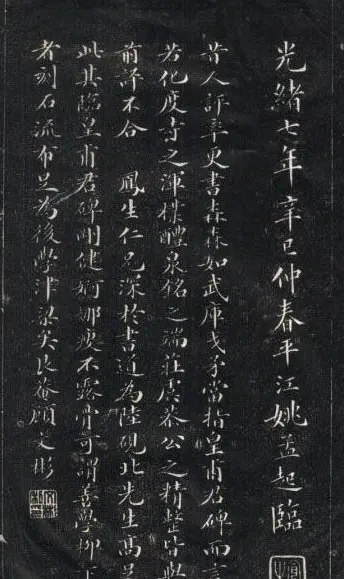 光緒七年辛巳仲春平江姚孟起臨
昔人評率更書森森如武庫戈矛當指皇甫君碑而言
若化度寺之渾樸醴泉銘之端莊虞恭公之精整皆與
前評不合 鳳生仁兄深於書道為陸硯北先生高足
此其臨皇甫君碑剛健婀娜瘦不露骨可謂善學柳下
者刻石流布足為後學津梁矣艮菴顧文彬